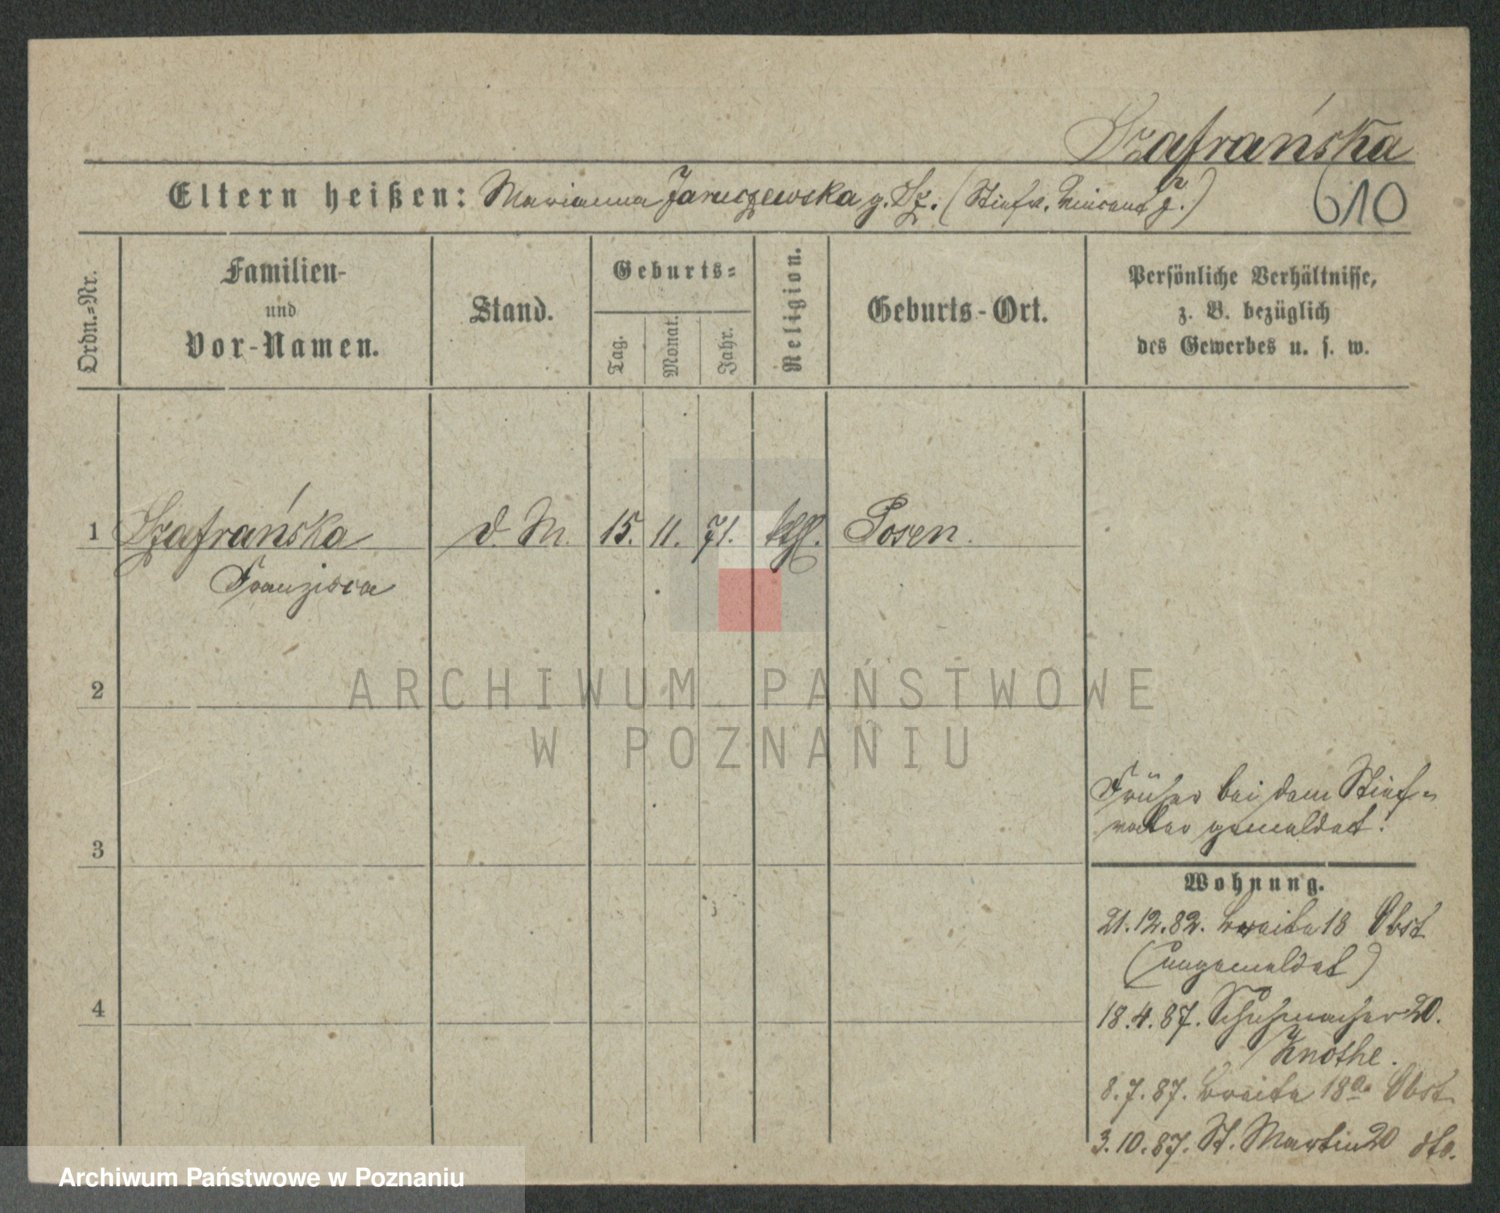 Szafrańska
Eltern heißen: Marianna Jaruszewska g. Sz. (Stiefv. Vincent J.)
610
Ordn.=Nr.
Familien-
und
Vor-Namen.
Stand.
Geburts=
Tag.
Monat.
Jahr.
Religion.
Geburts-Ort.
Persönliche Verhältnisse,
z. B. bezüglich
des Gewerbes u. s. w.
1 Szafrańska d. M. 15. 11. 71. kthl. Posen.
Franzisca
2
3
4
Früher bei dem Stief-
vater gemeldet!
Wohnung.
21.12.82. Breite 18 Obst
(umgemeldet)
18.4.87. Schuhmacher 20.
Knothe.
8.7.87. Breite 18a. Obst
3.10.87. St. Martin 20 dto.
ARCHIWUM PAŃSTWOWE
W POZNANIU
Archiwum Państwowe w Poznaniu